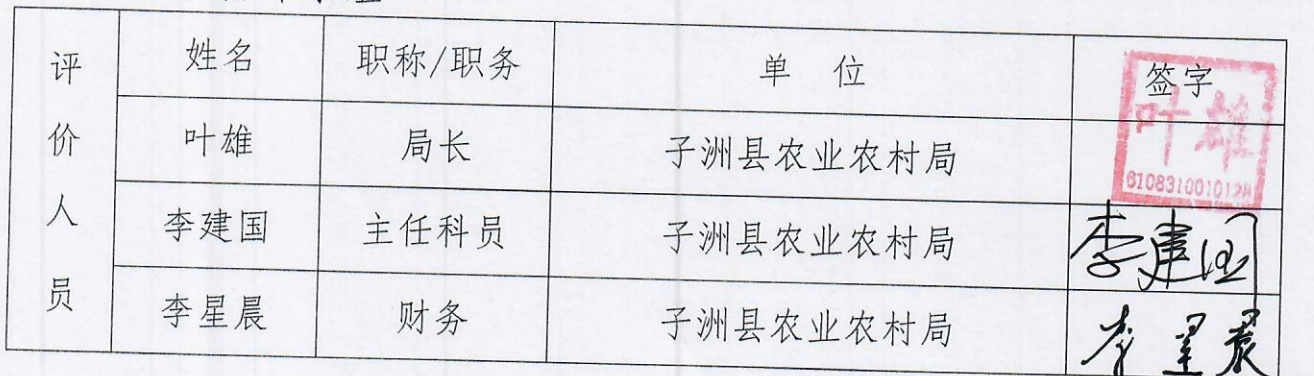 评价人员
姓名 职称/职务 单 位 签字
叶雄 局长 子洲县农业农村局 叶雄
李建国 主任科员 子洲县农业农村局 李建国
李星晨 财务 子洲县农业农村局 李星晨